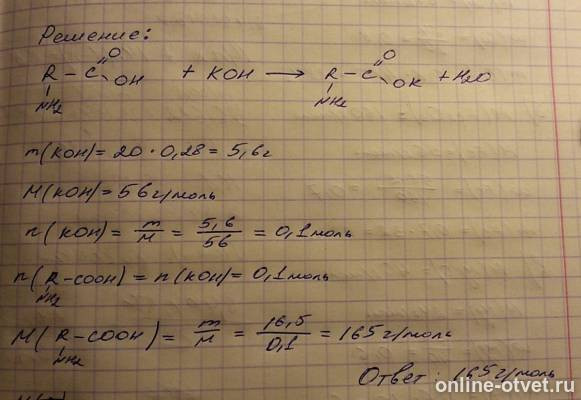 Решение:
R - C O OH + KOH → R - C O OK + H2O
NH2 NH2
m(KOH) = 20 · 0,28 = 5,6г
M(KOH) = 56 г/моль
n(KOH) = m/M = 5,6/56 = 0,1 моль
n(R-COOH) = n(KOH) = 0,1 моль
NH2
M(R-COOH) = m/M = 16,5/0,1 = 165 г/моль
NH2
Ответ: 165 г/моль
online-otvet.ru